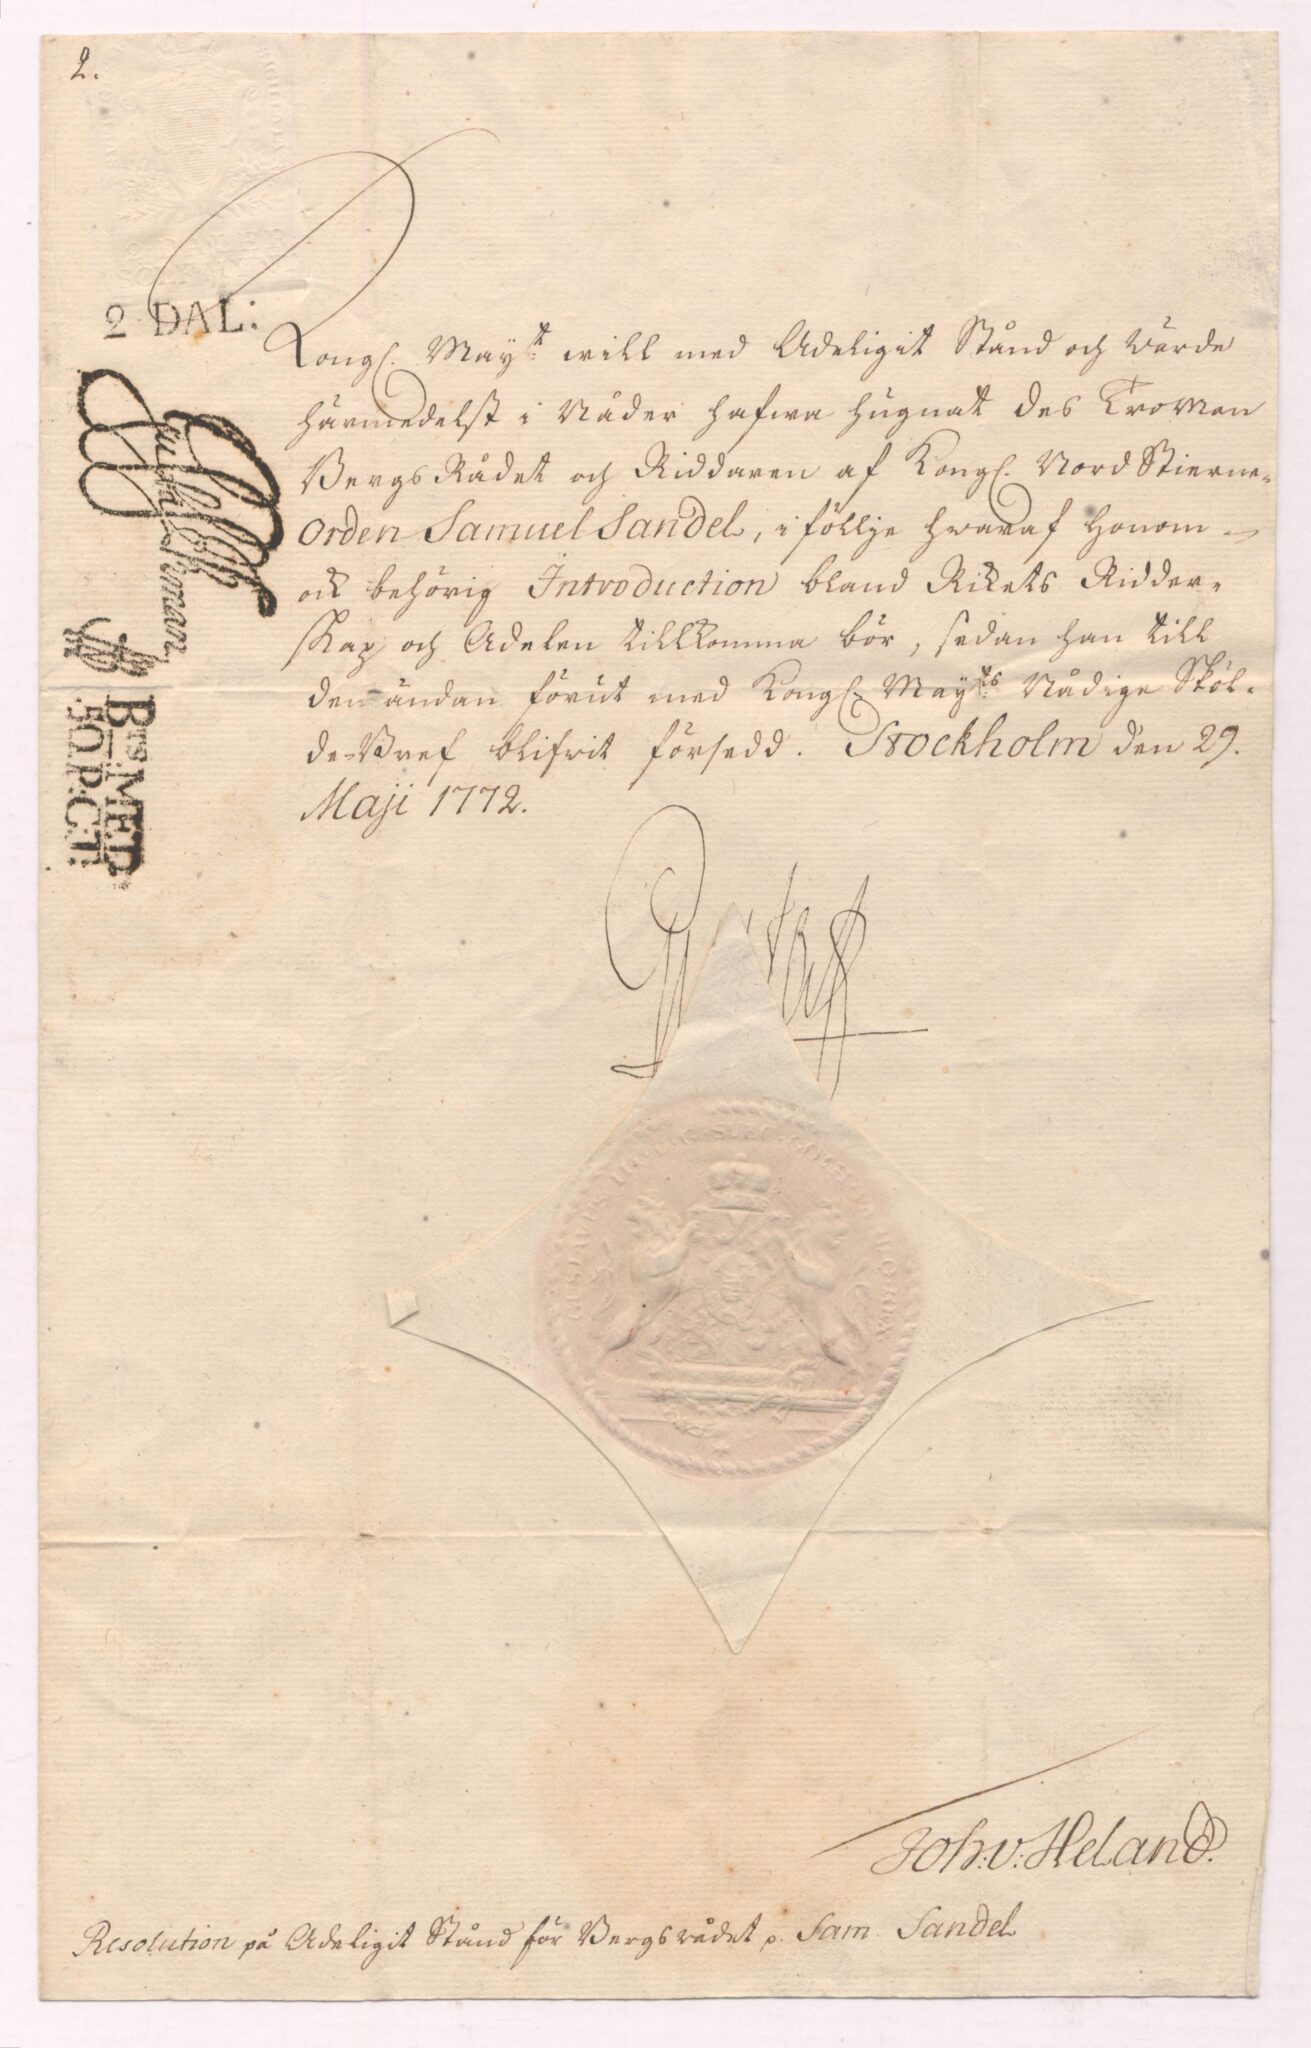 2.
2 DAL:
Kongl. May:t will med Adeligit Stånd och värde
härmedelst i Nåder hafwa hugnat des Tro Man
BergsRådet och Riddaren af Kongl. Nord Stierne-
Orden Samuel Sandel, i föllje hwaraf Honom
ock behörig Introduction bland Rikets Ridder-
skap och Adelen tillkomma bör, sedan han till
den ändan förut med Kongl. May:ts Nådige Sköl-
de-Bref blifwit försedd. Stockholm den 29.
Maji 1772.
Gustaf
GUSTAVUS III D.G. SUEC. GOTH
REX
B:rs MED
50. P.C.T.
Joh: v: Heland.
Resolution på Adeligit Stånd för Bergsrådet p. Sam Sandel